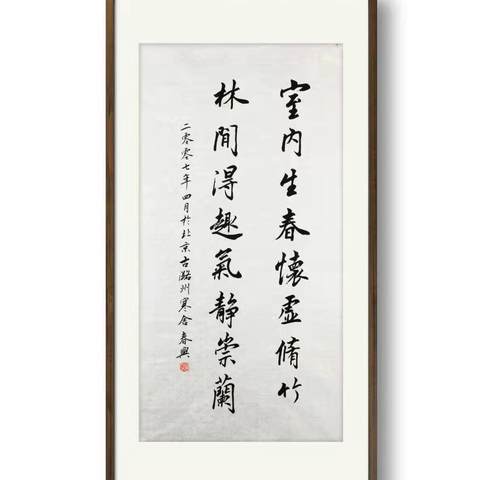 室内生春懷虚脩竹
林間得趣氣静崇蘭
二零零七年四月於北京古潞州寒舍春興